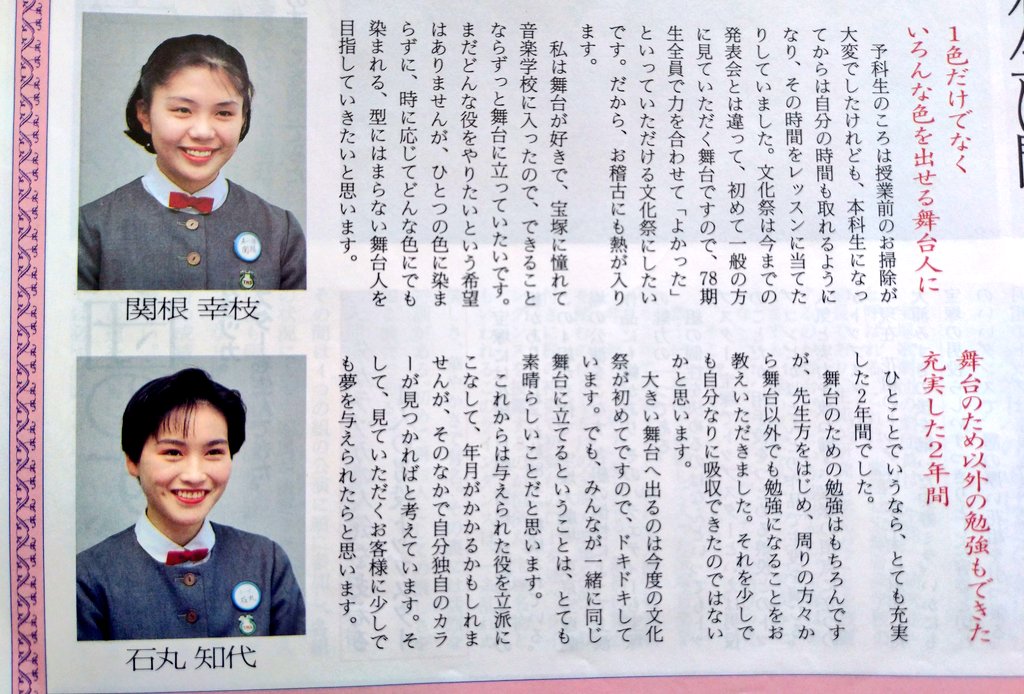 1色だけでなく
いろんな色を出せる舞台人に
予科生のころは授業前のお掃除が
大変でしたけれども、本科生になっ
てからは自分の時間も取れるように
なり、その時間をレッスンに当てた
りしていました。文化祭は今までの
発表会とは違って、初めて一般の方
に見ていただく舞台ですので、78期
生全員で力を合わせて「よかった」
といっていただける文化祭にしたい
です。だから、お稽古にも熱が入り
ます。
私は舞台が好きで、宝塚に憧れて
音楽学校に入ったので、できること
ならずっと舞台に立っていたいです。
まだどんな役をやりたいという希望
はありませんが、ひとつの色に染ま
らずに、時に応じてどんな色にでも
染まれる、型にはまらない舞台人を
目指していきたいと思います。
関根 幸枝
舞台のため以外の勉強もできた
充実した2年間
ひとことでいうなら、とても充実
した2年間でした。
舞台のための勉強はもちろんです
が、先生方をはじめ、周りの方々か
ら舞台以外でも勉強になることをお
教えいただきました。それを少しで
も自分なりに吸収できたのではない
かと思います。
大きい舞台へ出るのは今度の文化
祭が初めてですので、ドキドキして
います。でも、みんなが一緒に同じ
舞台に立てるということは、とても
素晴らしいことだと思います。
これからは与えられた役を立派に
こなして、年月がかかるかもしれま
せんが、そのなかで自分独自のカラ
ーが見つかればと考えています。そ
して、見ていただくお客様に少しで
も夢を与えられたらと思います。
石丸 知代